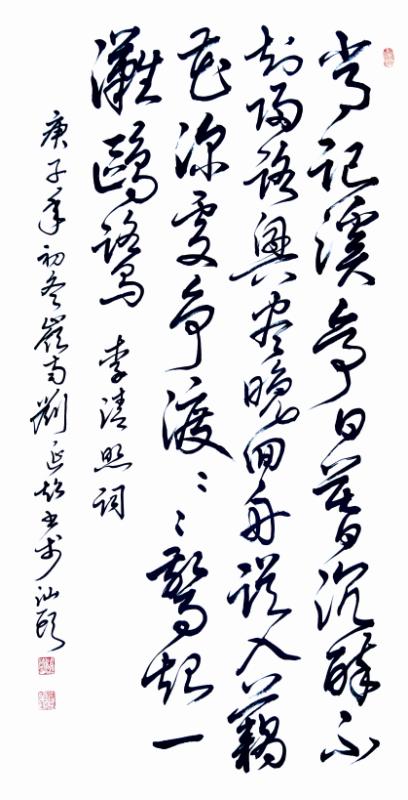 常記溪亭日暮沉醉不
知歸路興盡晚回舟誤入藕
花深處爭渡〻〻驚起一
灘鷗鷺 李清照詞
庚子年初冬嶺南劉延超書於汕頭